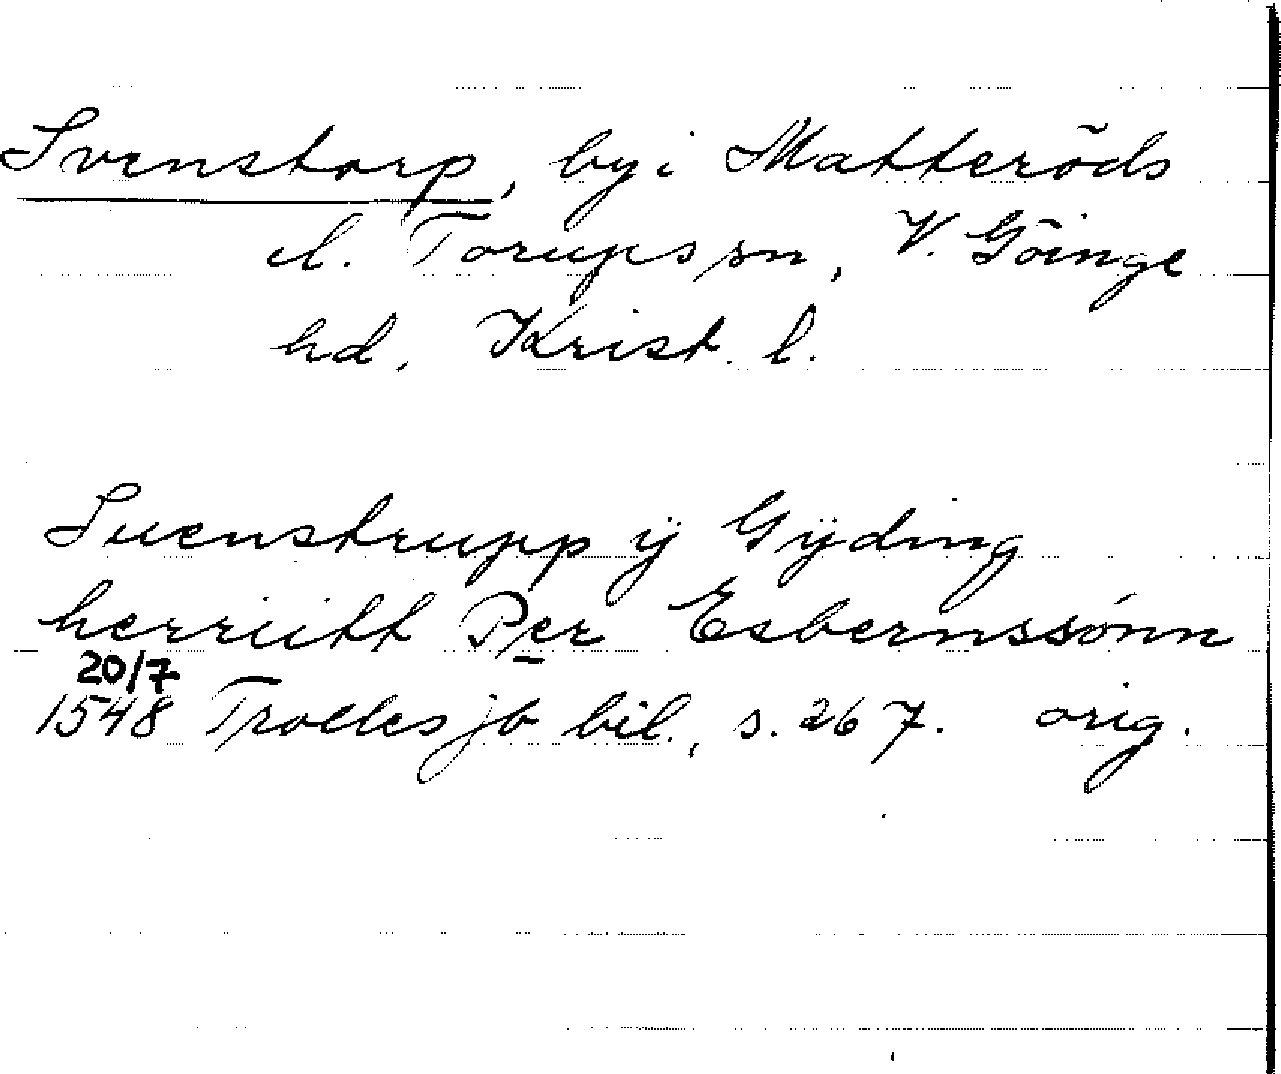 Svenstorp, by i Matteröds
el. Torups sn, V. Göinge
hd, Krist. l.
Suenstrupp ÿ Gÿding
herriitt Per Esbernssónn
20/7
1548 Trolles jb bil., s. 267. orig.